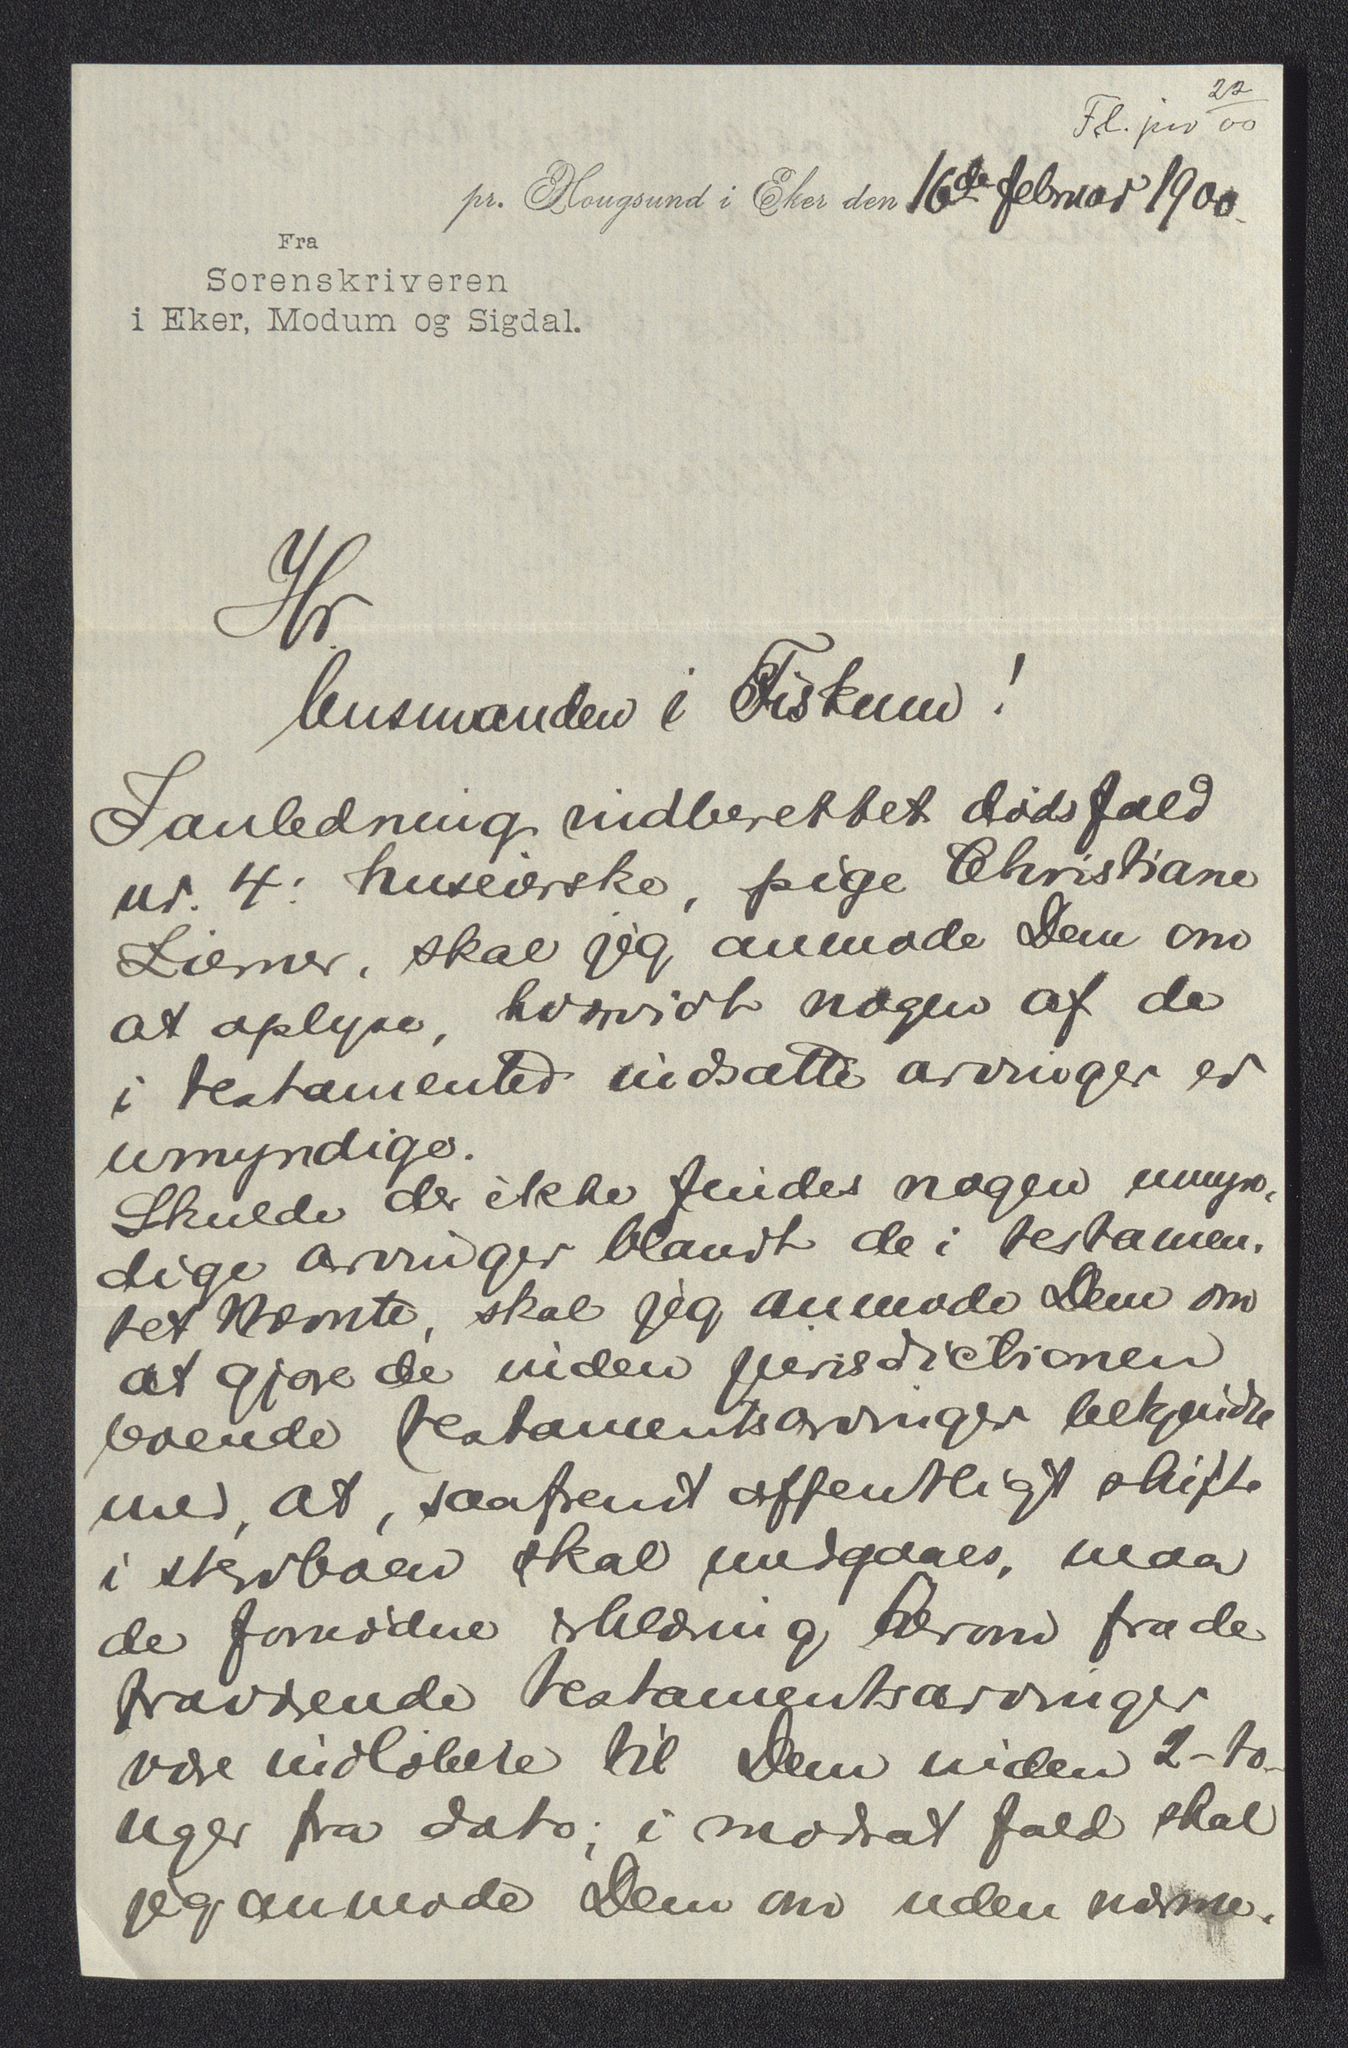 Fl. jno 22/00
pr. Hougsund i Eker den 16de februar 1900.
Fra
Sorenskriveren
i Eker, Modum og Sigdal.
Hr.
lensmanden i Fiskum!
I anledning indberettet dødsfald
nr. 4: huseierske, pige Christiane
Liemer, skal jeg anmode Dem om
at oplyse, hvorvidt nogen af de
i testamentet indsatte arvinger er
umyndige.
Skulde der ikke findes nogen umyn-
dige arvinger blandt de i testamen-
tet nævnte, skal jeg anmode Dem om
at gjøre de inden jurisdictionen
boende testamentsarvinger bekjendte
med, at, saafremt offentligt skifte
i stervboen skal undgaaes, maa
de fornødne erklæring herom fra de
fraværende testamentsarvinger
være indløbne til Dem inden 2-to-
uger fra dato; i modsat fald skal
jeg anmode Dem om uden nærme-